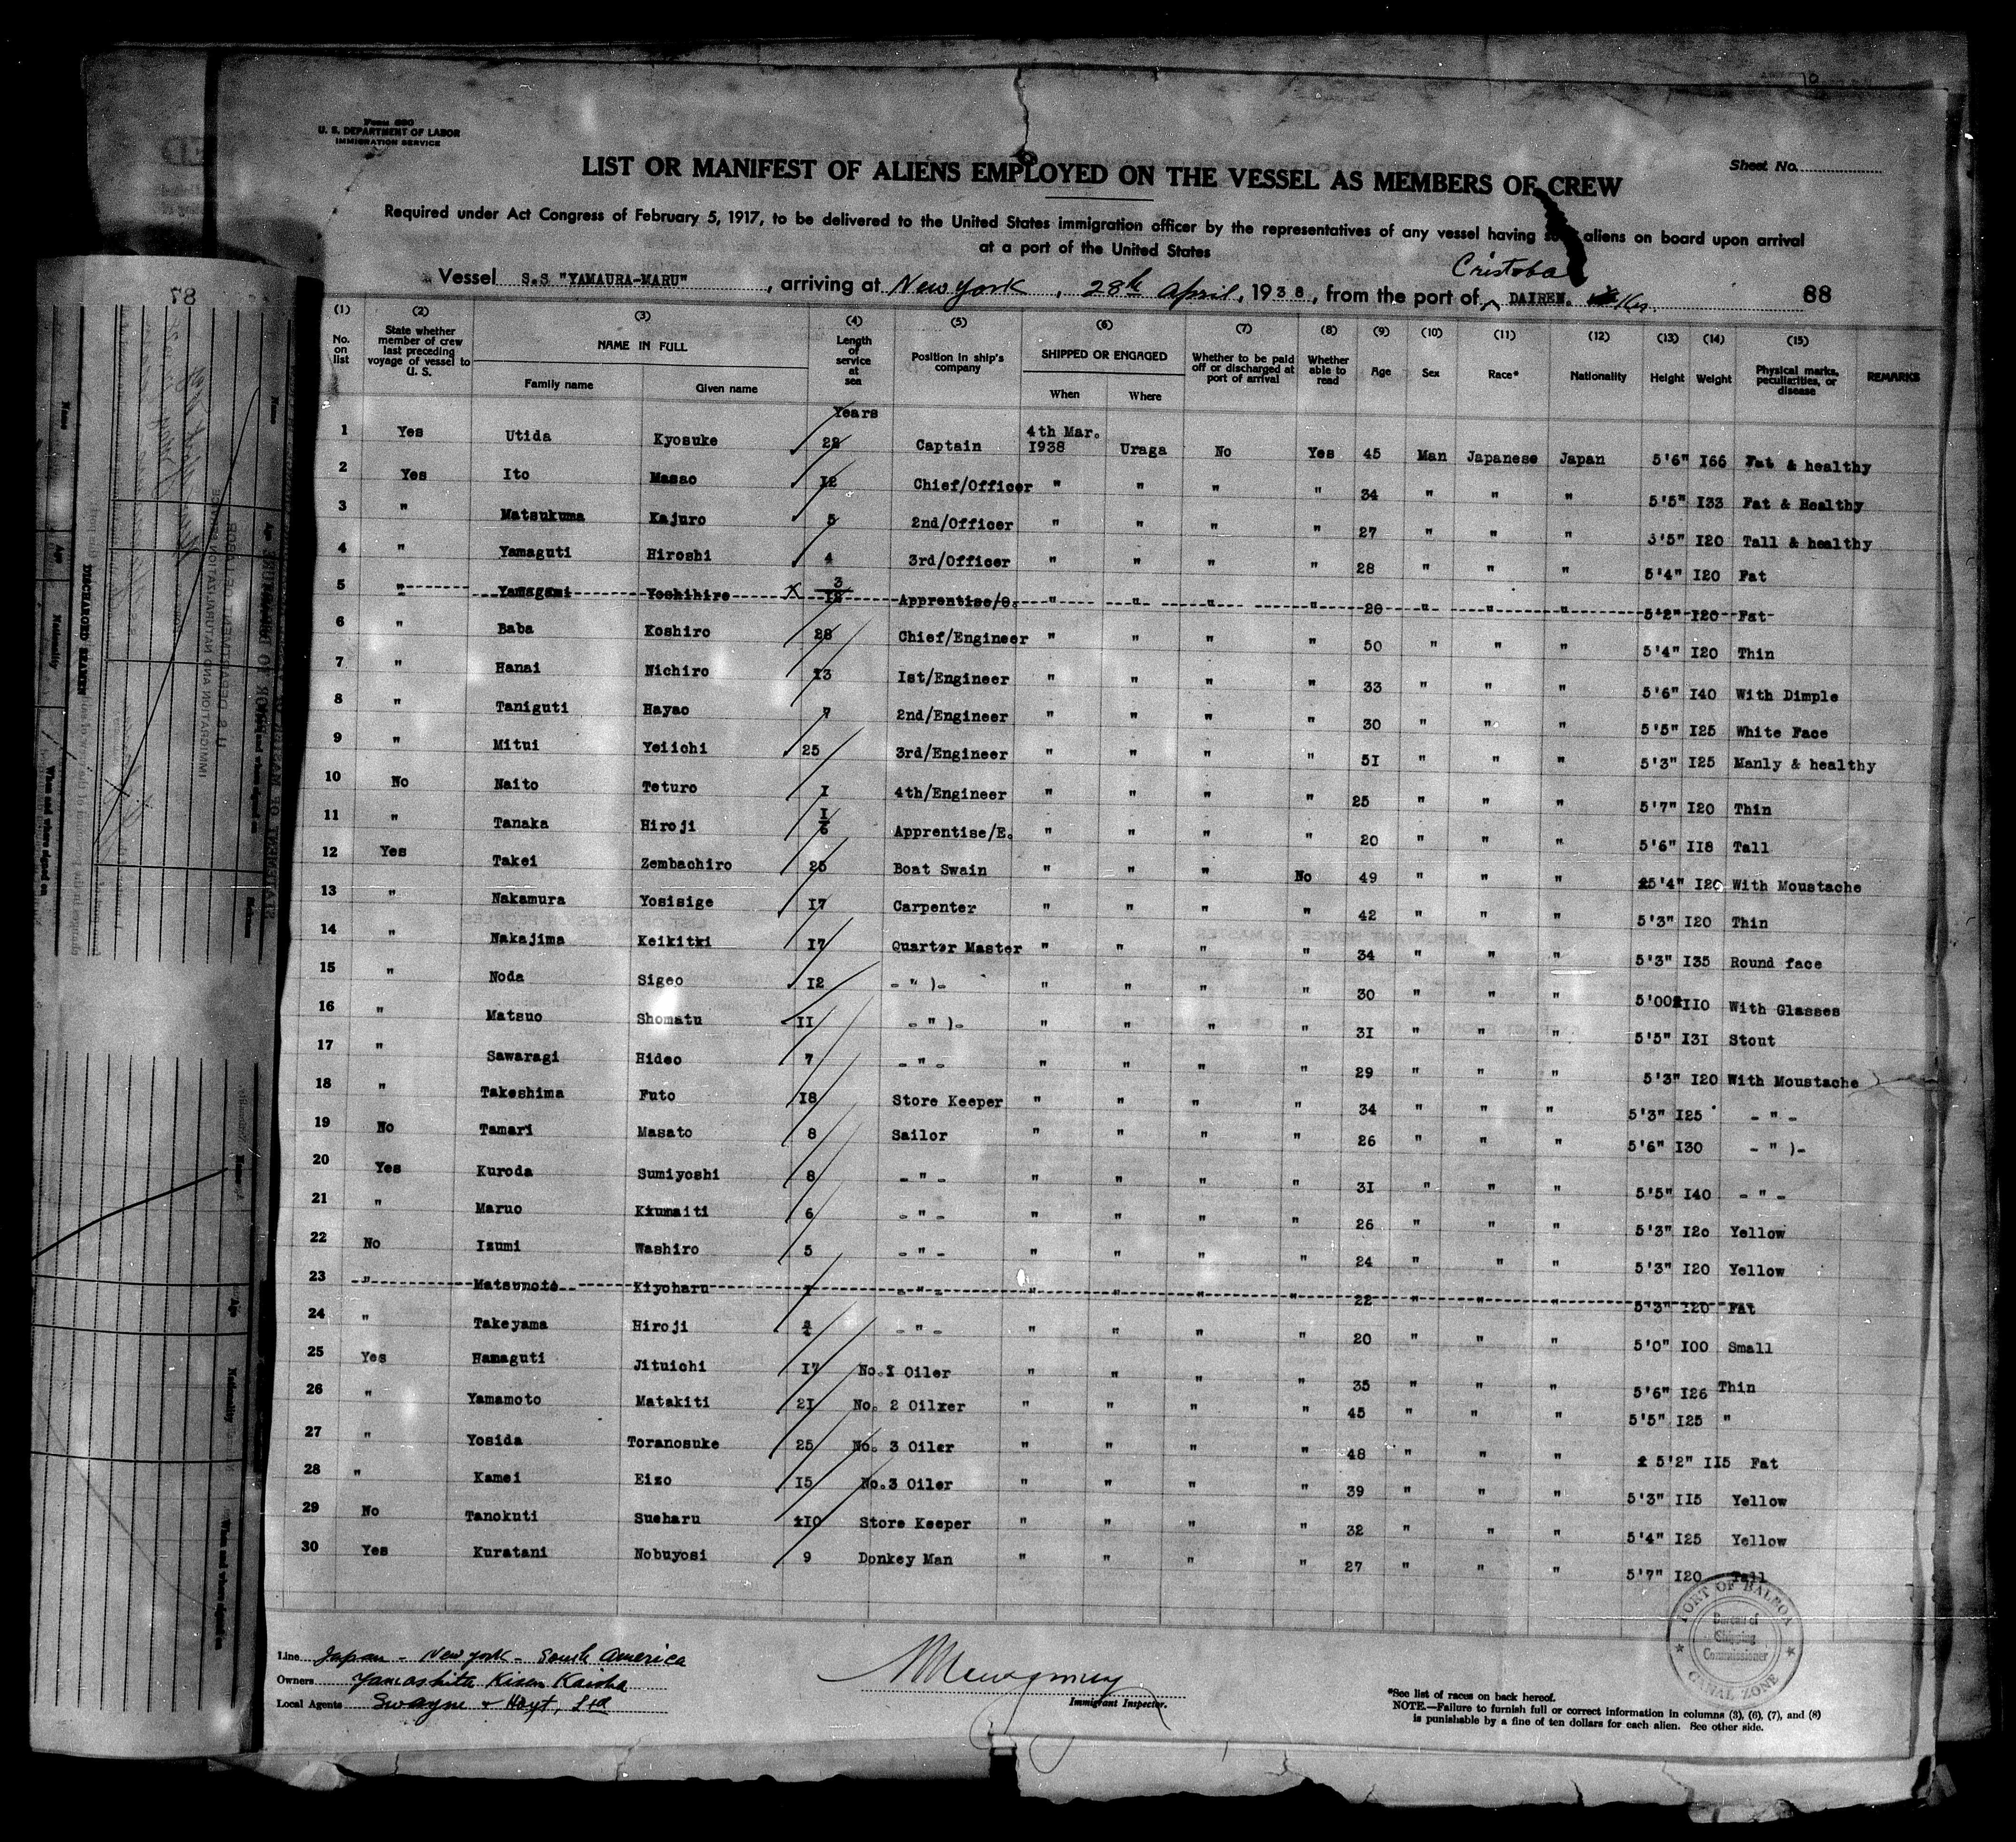 Form 680
U. S. DEPARTMENT OF LABOR
IMMIGRATION SERVICE
Sheet No.
LIST OR MANIFEST OF ALIENS EMPLOYED ON THE VESSEL AS MEMBERS OF CREW
Required under Act Congress of February 5, 1917, to be delivered to the United States immigration officer by the representatives of any vessel having such aliens on board upon arrival
at a port of the United States
Cristobal
Vessel S.S "YAMAURA-MARU", arriving at New York, 28th April, 1938, from the port of DAIREN.
88
(1) (2) (3) (4) (5) (6) (7) (8) (9) (10) (11) (12) (13) (14) (15)
No. on list State whether member of crew last preceding voyage of vessel to U. S. NAME IN FULL Family name Given name Length of service at sea Position in ship's company SHIPPED OR ENGAGED When Where Whether to be paid off or discharged at port of arrival Whether able to read Age Sex Race* Nationality Height Weight Physical marks, peculiarities, or disease REMARKS
Years
1 Yes Utida Kyosuke 28 Captain 4th Mar. I938 Uraga No Yes 45 Man Japanese Japan 5'6" I66 Fat & healthy
2 Yes Ito Masao I2 Chief/Officer " " " " 34 " " " 5'5" I33 Fat & Healthy
3 " Matsukuma Kajuro 5 2nd/Officer " " " " 27 " " " 5'5" I20 Tall & healthy
4 " Yamaguti Hiroshi 4 3rd/Officer " " " " 28 " " " 5'4" I20 Fat
5 " Yamagami Yoshihiro 3/I2 Apprentise/O. " " " " 20 " " " 5'2" I20 Fat
6 " Baba Koshiro 28 Chief/Engineer " " " " 50 " " " 5'4" I20 Thin
7 " Hanai Nichiro I3 Ist/Engineer " " " " 33 " " " 5'6" I40 With Dimple
8 " Taniguti Hayao 7 2nd/Engineer " " " " 30 " " " 5'5" I25 White Face
9 " Mitui Yeiichi 25 3rd/Engineer " " " " 5I " " " 5'3" I25 Manly & healthy
10 No Naito Teturo I 4th/Engineer " " " " 25 " " " 5'7" I20 Thin
11 " Tanaka Hiroji I/6 Apprentise/E. " " " " 20 " " " 5'6" II8 Tall
12 Yes Takei Zembachiro 25 Boat Swain " " " No 49 " " " 5'4" I20 With Moustache
13 " Nakamura Yosisige I7 Carpenter " " " " 42 " " " 5'3" I20 Thin
14 " Nakajima Keikitki I7 Quarter Master " " " " 34 " " " 5'3" I35 Round face
15 " Noda Sigeo I2 - " )- " " " " 30 " " " 5'00 II0 With Glasses
16 " Matsuo Shomatu II - " )- " " " " 3I " " " 5'5" I3I Stout
17 " Sawaragi Hideo 7 - " - " " " " 29 " " " 5'3" I20 With Moustache
18 " Takeshima Futo I8 Store Keeper " " " " 34 " " " 5'3" I25 - " -
19 No Tamari Masato 8 Sailor " " " " 26 " " " 5'6" I30 - " )-
20 Yes Kuroda Sumiyoshi 8 - " - " " " " 3I " " " 5'5" I40 - " -
21 " Maruo Kiumaiti 6 - " - " " " " 26 " " " 5'3" I20 Yellow
22 No Izumi Washiro 5 - " - " " " " 24 " " " 5'3" I20 Yellow
23 " Matsumoto Kiyoharu I - " - " " " " 22 " " " 5'3" I20 Fat
24 " Takeyama Hiroji - " - " " " " 20 " " " 5'0" I00 Small
25 Yes Hamaguti Jituichi I7 No.I Oiler " " " " 35 " " " 5'6" I26 Thin
26 " Yamamoto Matakiti 2I No. 2 Oilxer " " " " 45 " " " 5'5" I25 "
27 " Yosida Toranosuke 25 No. 3 Oiler " " " " 48 " " " 5'2" II5 Fat
28 " Kamei Eizo I5 No.3 Oiler " " " " 39 " " " 5'3" II5 Yellow
29 No Tanokuti Sueharu I0 Store Keeper " " " " 32 " " " 5'4" I25 Yellow
30 Yes Kuratani Nobuyosi 9 Donkey Man " " " " 27 " " " 5'7" I20 Tall
PORT OF BALBOA
Bureau of Shipping Commissioner
CANAL ZONE
Line Japan - New York - South America
Owners Yamashita Kisen Kaisha
Local Agents Swayne & Hoyt, Ltd
Immigrant Inspector.
*See list of races on back hereof.
NOTE.—Failure to furnish full or correct information in columns (3), (6), (7), and (8)
is punishable by a fine of ten dollars for each alien. See other side.
87
DISCHARGED SEAMEN
U. S. DEPARTMENT OF LABOR
IMMIGRATION AND NATURALIZATION SERVICE
Name
Age
Nationality
When and where signed on